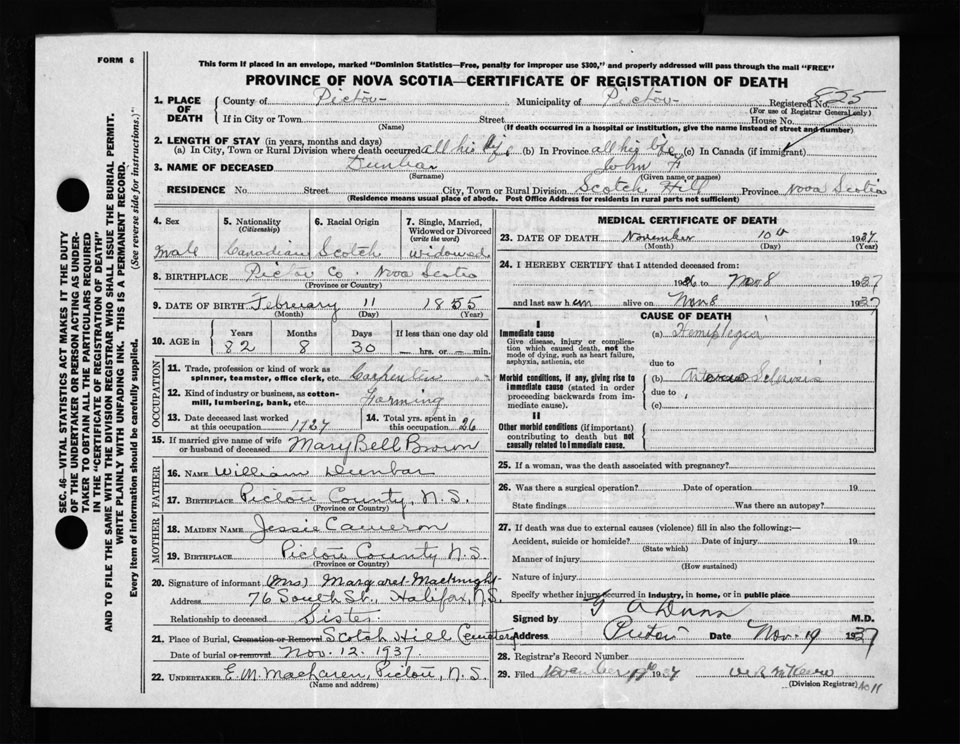 FORM 6
This form if placed in an envelope, marked "Dominion Statistics—Free, penalty for improper use $300," and properly addressed will pass through the mail "FREE"
PROVINCE OF NOVA SCOTIA—CERTIFICATE OF REGISTRATION OF DEATH
SEC. 46—VITAL STATISTICS ACT MAKES IT THE DUTY
OF THE UNDERTAKER OR PERSON ACTING AS UNDER-
TAKER TO OBTAIN ALL THE PARTICULARS REQUIRED
IN THE "CERTIFICATE OF REGISTRATION OF DEATH"
AND TO FILE THE SAME WITH THE DIVISION REGISTRAR WHO SHALL ISSUE THE BURIAL PERMIT.
WRITE PLAINLY WITH UNFADING INK. THIS IS A PERMANENT RECORD.
Every item of information should be carefully supplied. (See reverse side for instructions.)
1. PLACE OF DEATH
County of Pictou Municipality of Pictou Registered No. 825
(For use of Registrar General only)
If in City or Town Street House No.
(Name) (If death occurred in a hospital or institution, give the name instead of street and number)
2. LENGTH OF STAY (in years, months and days)
(a) In City, Town or Rural Division where death occurred all his life (b) In Province all his life (c) In Canada (if immigrant)
3. NAME OF DECEASED Dunbar John F
(Surname) (Given name or names)
RESIDENCE No. Street City, Town or Rural Division Scotch Hill Province Nova Scotia
(Residence means usual place of abode. Post Office Address for residents in rural parts not sufficient)
4. Sex
male
5. Nationality
(Citizenship)
Canadian
6. Racial Origin
Scotch
7. Single, Married,
Widowed or Divorced
(write the word)
widowed
8. BIRTHPLACE Pictou Co. Nova Scotia
(Province or Country)
9. DATE OF BIRTH February 11 1855
(Month) (Day) (Year)
10. AGE in
Years Months Days If less than one day old
82 8 30 — hrs. or — min.
OCCUPATION
11. Trade, profession or kind of work as
spinner, teamster, office clerk, etc. Carpenter
12. Kind of industry or business, as cotton-
mill, lumbering, bank, etc. Farming
13. Date deceased last worked
at this occupation 1927
14. Total yrs. spent in
this occupation 26
15. If married give name of wife
or husband of deceased Mary Bell Brown
FATHER
16. NAME William Dunbar
17. BIRTHPLACE Pictou County, N.S.
(Province or Country)
MOTHER
18. MAIDEN NAME Jessie Cameron
19. BIRTHPLACE Pictou County N.S.
(Province or Country)
20. Signature of informant (Mrs) Margaret MacKnight
Address 76 South St., Halifax, N.S.
Relationship to deceased Sister.
21. Place of Burial, Cremation or Removal Scotch Hill Cemetery
Date of burial or removal Nov. 12. 1937.
22. UNDERTAKER E.M. MacLaren, Pictou, N.S.
(Name and address)
MEDICAL CERTIFICATE OF DEATH
23. DATE OF DEATH November 10th 1937
(Month) (Day) (Year)
24. I HEREBY CERTIFY that I attended deceased from:
1936 to Nov 8 1937
and last saw him alive on Nov 8 1937
CAUSE OF DEATH
I
Immediate cause
Give disease, injury or complica-
tion which caused death, not the
mode of dying, such as heart failure,
asphyxia, asthenia, etc
(a) Hemiplegia
due to
Morbid conditions, if any, giving rise to
immediate cause (stated in order
proceeding backwards from im-
mediate cause).
(b) Arterio Sclerosis
due to
(c)
II
Other morbid conditions (if important)
contributing to death but not
causally related to immediate cause.
25. If a woman, was the death associated with pregnancy?
26. Was there a surgical operation? Date of operation 19
State findings Was there an autopsy?
27. If death was due to external causes (violence) fill in also the following:—
Accident, suicide or homicide? Date of injury 19
(State which)
Manner of injury
(How sustained)
Nature of injury
Specify whether injury occurred in industry, in home, or in public place
Signed by G A Dunn M.D.
Address Pictou Date Nov. 19 1937
28. Registrar's Record Number
29. Filed November 19th 1937
(Division Registrar)